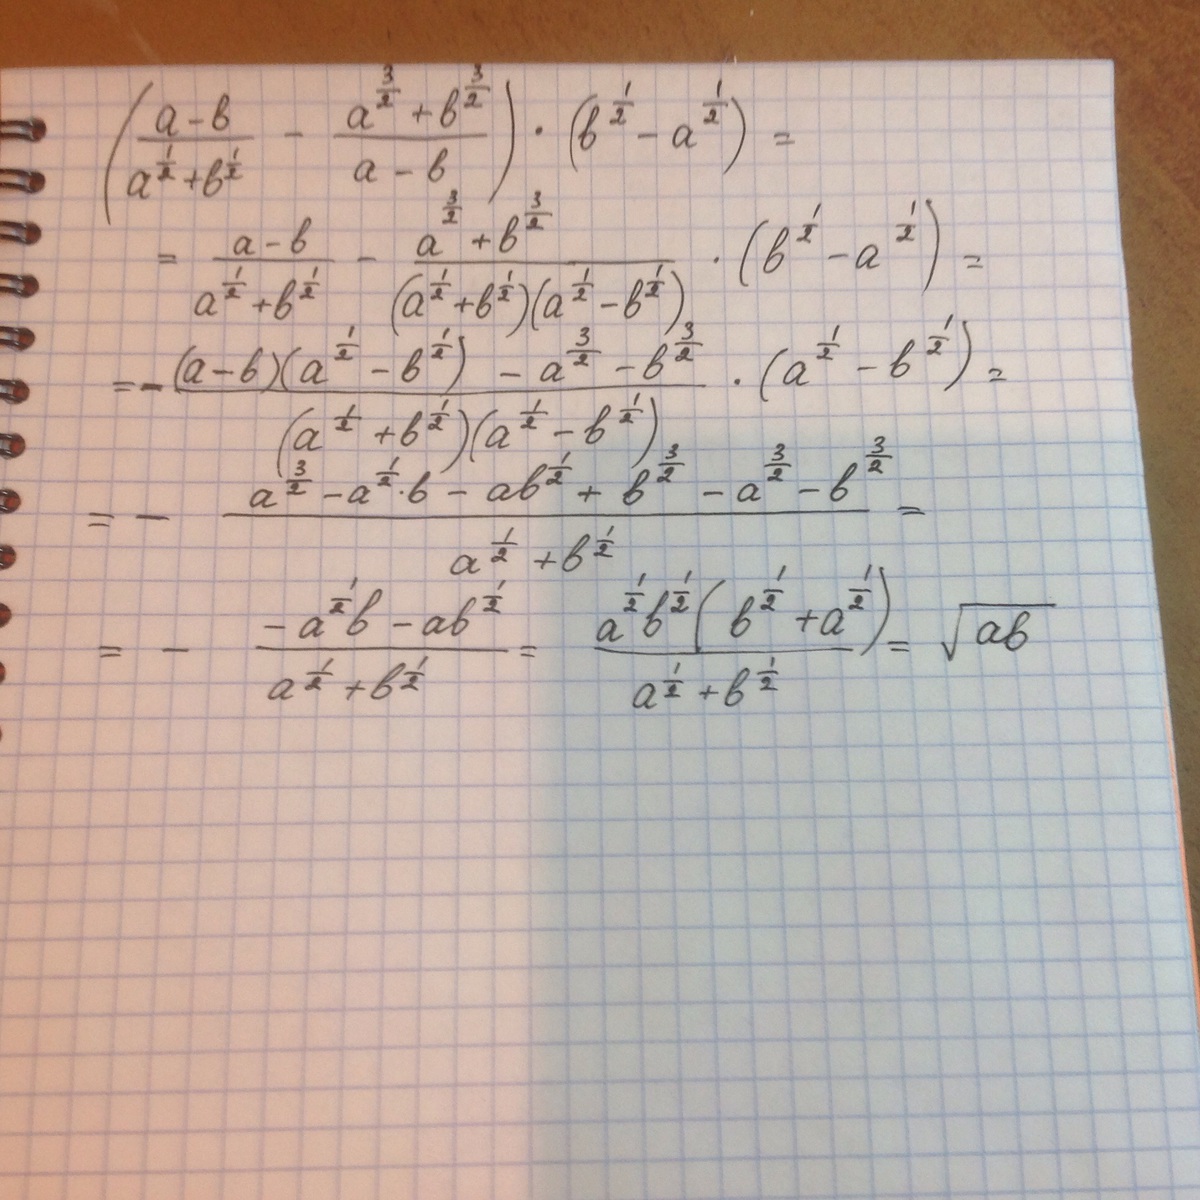 (a-b / a^(1/2)+b^(1/2) - a^(3/2)+b^(3/2) / a-b) · (b^(1/2) - a^(1/2)) =
= a-b / a^(1/2)+b^(1/2) - a^(3/2)+b^(3/2) / (a^(1/2)+b^(1/2))(a^(1/2)-b^(1/2)) · (b^(1/2) - a^(1/2)) =
= - (a-b)(a^(1/2)-b^(1/2)) - a^(3/2) - b^(3/2) / (a^(1/2)+b^(1/2))(a^(1/2)-b^(1/2)) · (a^(1/2) - b^(1/2)) =
= - a^(3/2) - a^(1/2)·b - ab^(1/2) + b^(3/2) - a^(3/2) - b^(3/2) / a^(1/2)+b^(1/2) =
= - -a^(1/2)b - ab^(1/2) / a^(1/2)+b^(1/2) = a^(1/2)b^(1/2)(b^(1/2)+a^(1/2)) / a^(1/2)+b^(1/2) = √ab